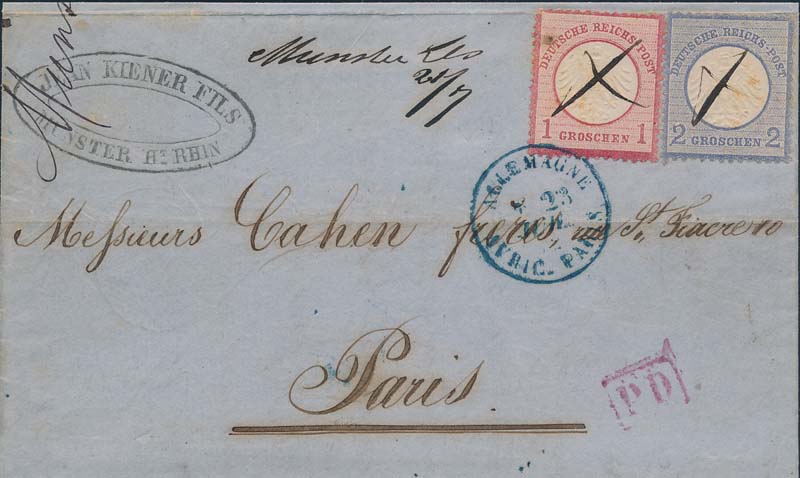 JEAN KIENER FILS
MUNSTER Ht. RHIN
Muns
Munster
DEUTSCHE REICHS-POST
1 GROSCHEN 1
DEUTSCHE REICHS-POST
2 GROSCHEN 2
ALLEMAGNE
23
PARIS
Meſsieurs Cahen frères rue St. Fiacre 10
Paris
PD